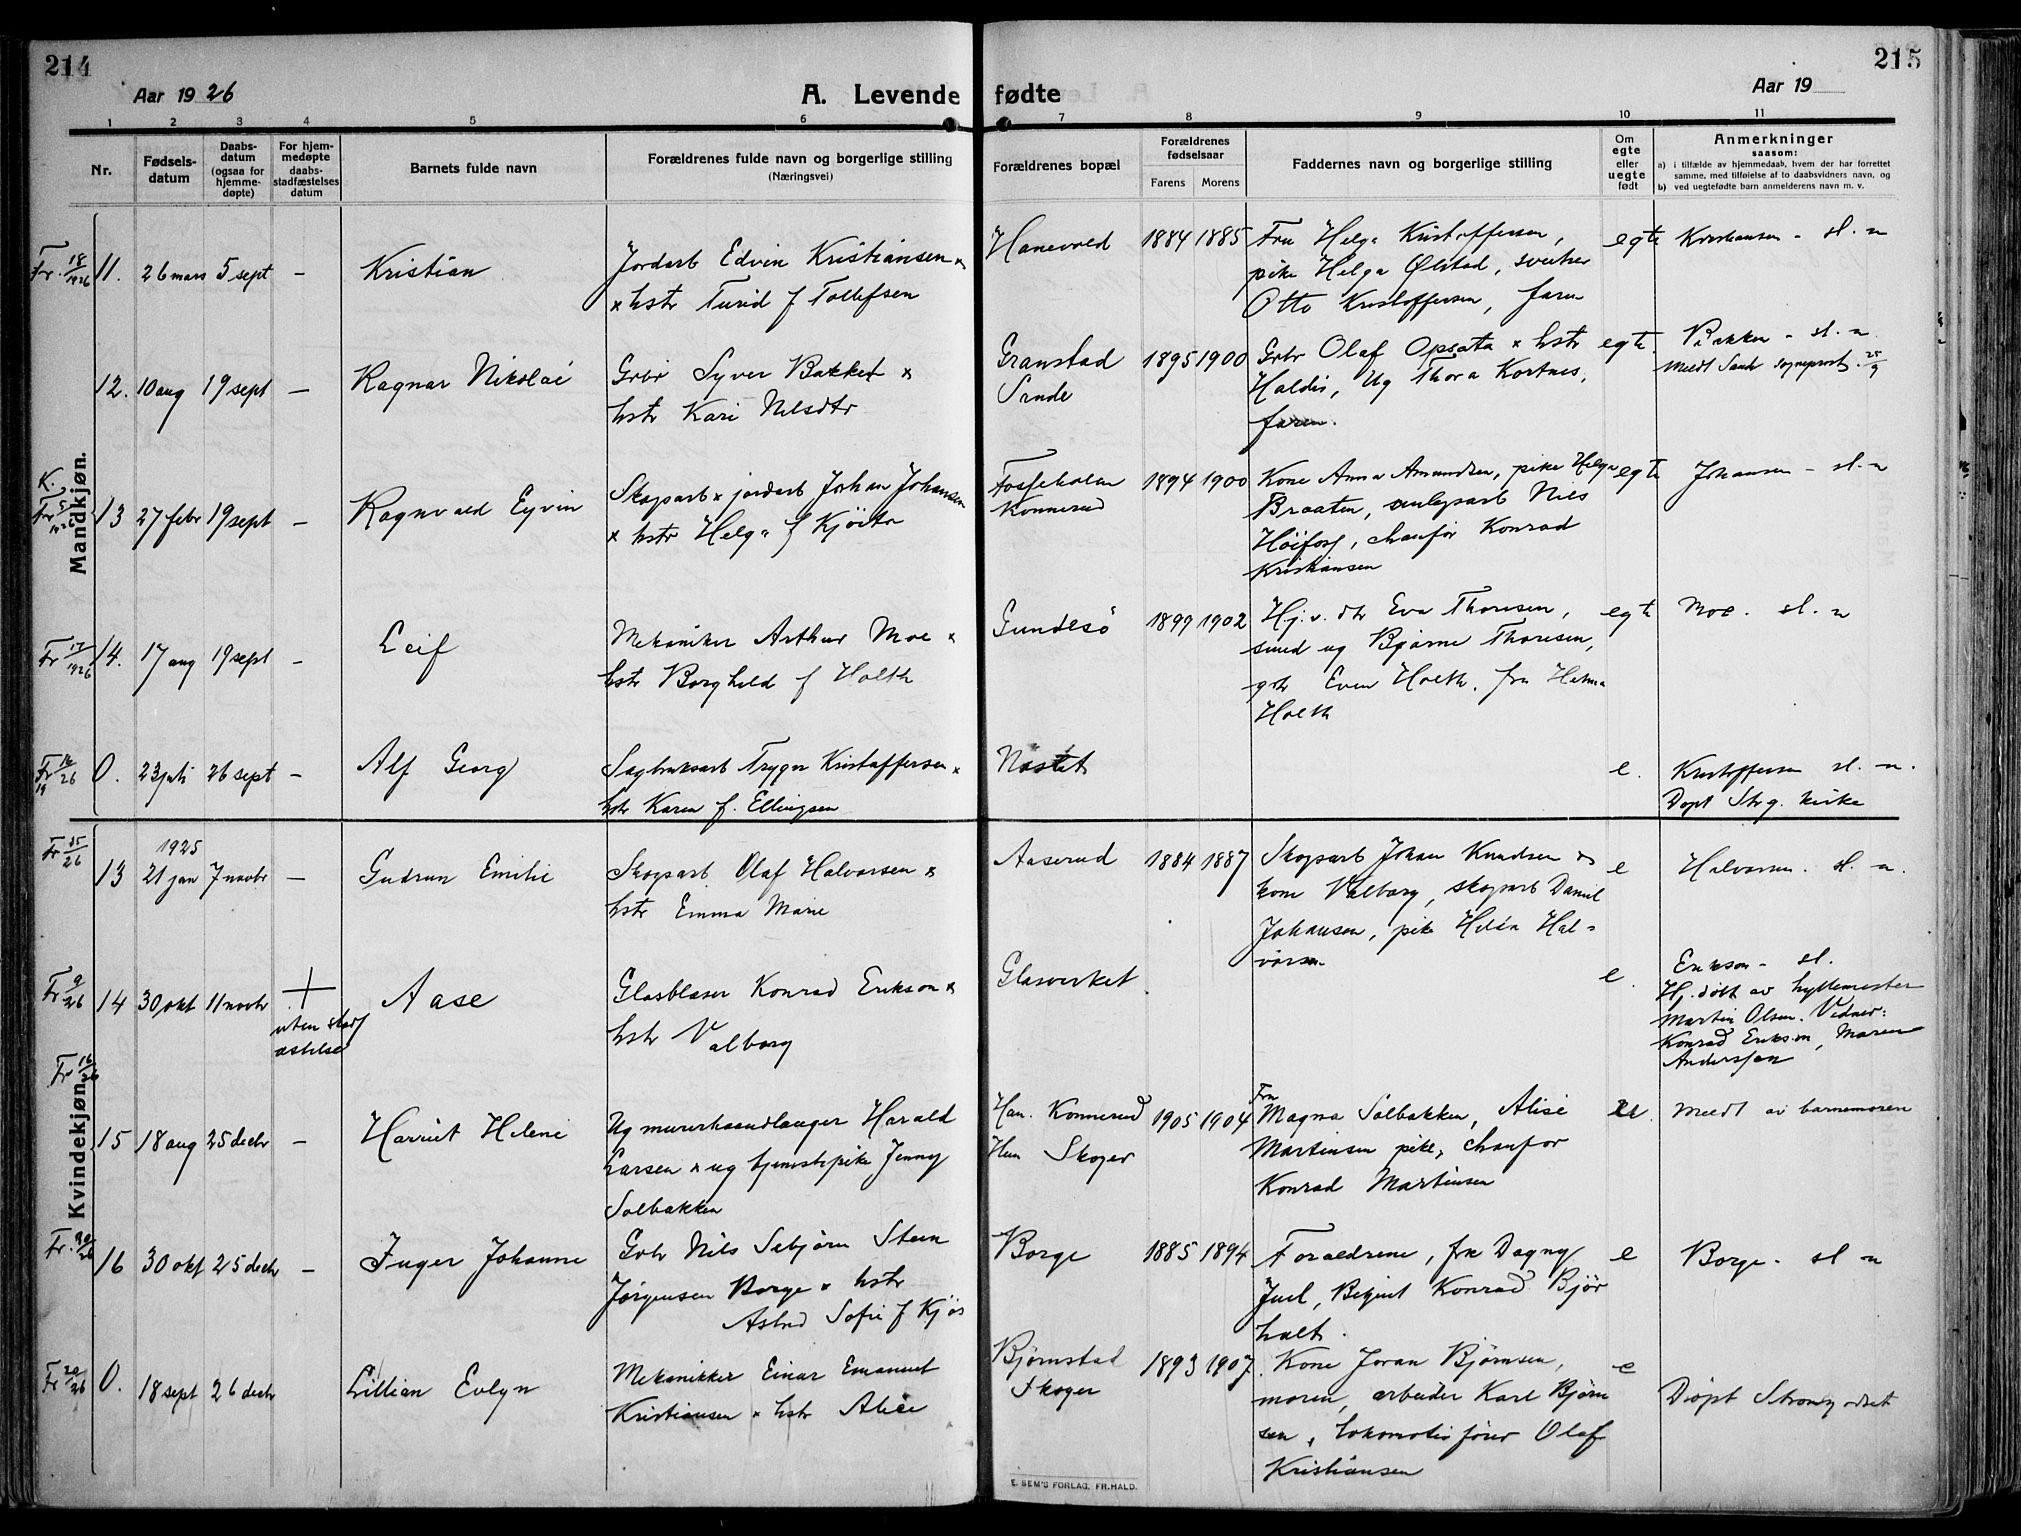 214
Aar 1926
A. Levende fødte
Aar 19
215
1 2 3 4 5 6 7 8 9 10 11
Nr.
Fødsels-
datum
Daabs-
datum
(ogsaa for
hjemme-
døpte)
For hjem-
medøpte
daabs-
stadfæstelses
datum
Barnets fulde navn
Forældrenes fulde navn og borgerlige stilling
(Næringsvei)
Forældrenes bopæl
Forældrenes
fødselsaar
Farens Morens
Faddernes navn og borgerlige stilling
Om
egte
eller
uegte
født
Anmerkninger
saasom:
a) i tilfælde av hjemmedaab, hvem der har forrettet
samme, med tilføielse af to daabsvidners navn, og
b) ved uegtefødte barn anmelderens navn m. v.
Mandkjøn.
Fr. 18/1926 11. 26 mars 5 sept – Kristian
Jordarb Edvin Kristiansen x
x hstr Turid f Tollefsen
Hanevold 1884 1885
Fru Helga Kristoffersen,
pike Helga Ølstad, sveiser
Otto Kristoffersen, faren
egte Kristiansen – sl. n
12. 10 aug 19 sept – Ragnar Nikolai
Grbr Syver Bakket x
hstr Kari Nilsdtr
Granstad
Sande
1895 1900
Grbr Olaf Opsata x hstr
Haldis, Ug Thora Kortnes,
faren.
egte. Bakken – sl. n
Meldt Sande sogneprest. 25/9
K.
Fr 13 27 febr 19 sept – Ragnvald Eyvin
Skogsarb x jordarb Johan Johansen
x hstr Helga f Kjöstr
Fosseholm
Konnerud
1894 1900
Kone Anna Amundsen, pike Helga
Braaten, anlegsarb Nils
Höifoss, chauför Konrad
Kristiansen
egte Johansen – sl. n
Fr 17/1926 14. 17 aug 19 sept – Leif
Mekaniker Arthur Moe x
hstr Borghild f Holth
Gundesö 1899 1902
Hj. v. dtr Eva Thoresen,
smed ug Bjarne Thoresen,
gbr Even Holth, fru Helma
Holth
egte Moe. sl. n
Fr 16/26 0. 23 juli 26 sept – Alf Georg
Sagbruksarb Trygve Kristoffersen x
hstr Karen f. Ellingsen
Nøstet e. Kristoffersen sl. n.
Døpt Strg. kirke
Kvindekjøn.
Fr 25/26 13 1925
21 jan 7 novbr – Gudrun Emilie
Skogsarb Olaf Halvorsen x
hstr Emma Marie
Aaserud 1884 1887
Skogsarb Johan Knudsen x
kone Valborg, skogsarb Daniel
Johansen, pike Hilda Hal-
vorsen
e Halvorsen. sl. n.
Fr 9/26 14 30 okt 11 novbr +
uten stadf
æstelse
Aase
Glasblaser Konrad Erikson x
hstr Valborg
Glasverket e.
Erikson – sl.
Hj. döbt av hyttemester
Martin Olsen. Vidner:
Konrad Erikson, Maren
Anderssen
Fr 16/26 15 18 aug 25 decbr – Harriet Helene
Ug murerhaandlanger Harald
Larsen x ug tjenestepike Jenny
Solbakken
Han. Konnerud
Hun Skoger
1905 1904
Fru
Magna Solbakken, Alise
Martinsen pike, chauför
Konrad Martinsen
u. Meldt av barnemoren
Fr. 20/26 16 30 okt 25 decbr – Inger Johanne
Gbr Nils Sebjörn Steen
Jørgensen Borge x hstr
Astrid Sofie f Kjös
Borge 1885 1894
Foraeldrene, frk Dagny
Juel, Konrad Björ
holt.
e Borge – sl n
Fr 20/26 0. 18 sept 26 decbr Lillian Evlyn
Mekanikker Einar Emanuel
Kristiansen x hstr Alice
Bjørnstad
Skoger
1893 1907.
Kone Joran Bjørnsen,
moren, arbeider Karl Bjørn
sen, lokomotivfører Olaf
Kristiansen
e Døpt Strömsgodset
E. SEM'S FORLAG, FR.HALD.